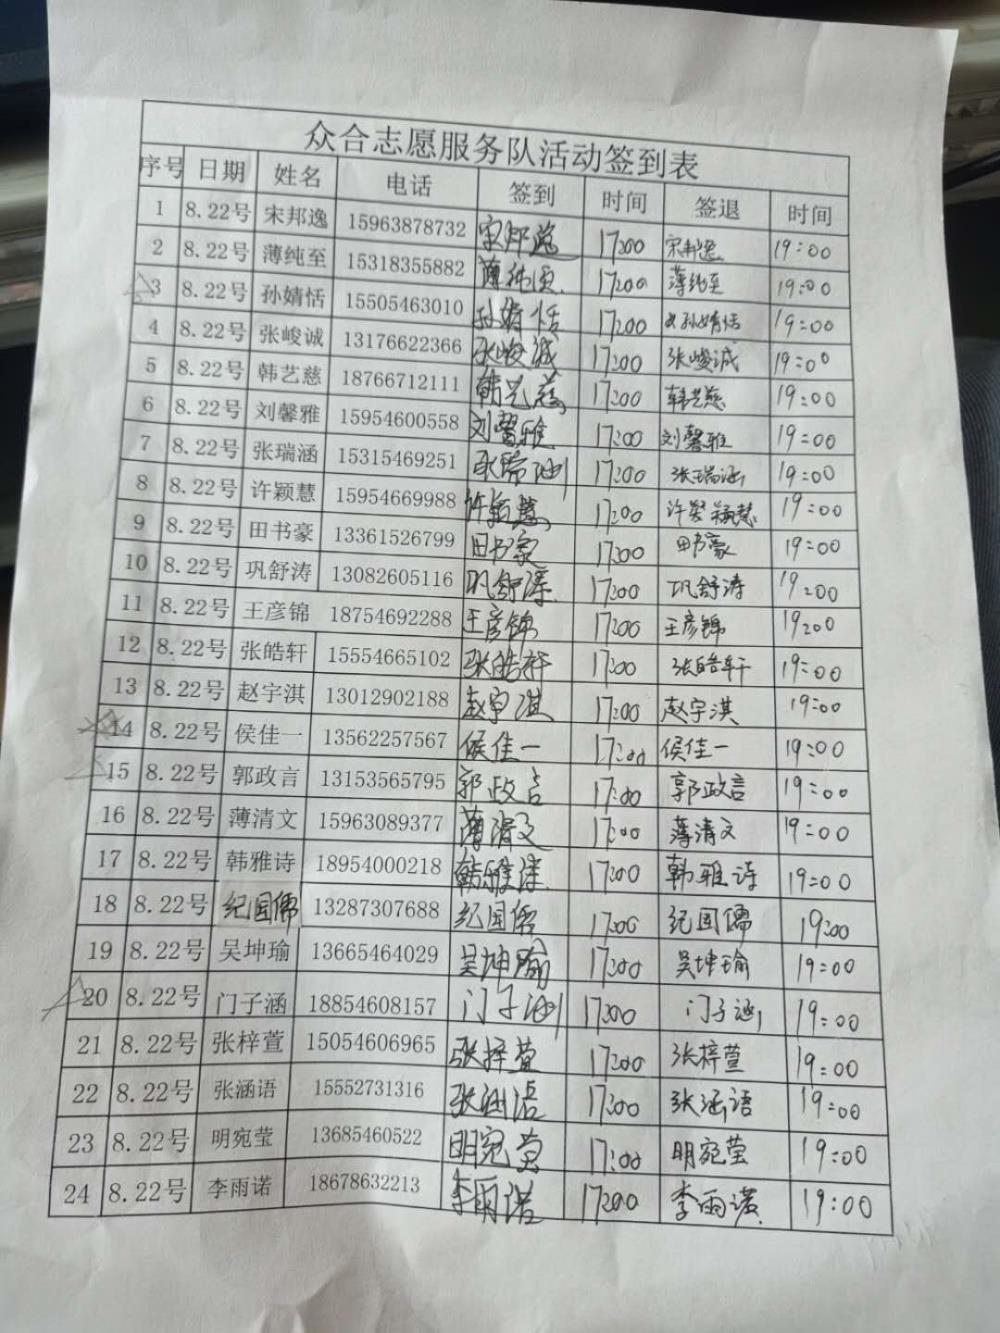 众合志愿服务队活动签到表
序号 日期 姓名 电话 签到 时间 签退 时间
1 8.22号 宋邦逸 15963878732 宋邦逸 17:00 宋邦逸 19:00
2 8.22号 薄纯至 15318355882 薄纯至 17:00 薄纯至 19:00
3 8.22号 孙婧恬 15505463010 孙婧恬 17:00 孙婧恬 19:00
4 8.22号 张峻诚 13176622366 张峻诚 17:00 张峻诚 19:00
5 8.22号 韩艺慈 18766712111 韩艺慈 17:00 韩艺慈 19:00
6 8.22号 刘馨雅 15954600558 刘馨雅 17:00 刘馨雅 19:00
7 8.22号 张瑞涵 15315469251 张瑞涵 17:00 张瑞涵 19:00
8 8.22号 许颖慧 15954669988 许颖慧 17:00 许颖慧 19:00
9 8.22号 田书豪 13361526799 田书豪 17:00 田书豪 19:00
10 8.22号 巩舒涛 13082605116 巩舒涛 17:00 巩舒涛 19:00
11 8.22号 王彦锦 18754692288 王彦锦 17:00 王彦锦 19:00
12 8.22号 张皓轩 15554665102 张皓轩 17:00 张皓轩 19:00
13 8.22号 赵宇淇 13012902188 赵宇淇 17:00 赵宇淇 19:00
14 8.22号 侯佳一 13562257567 侯佳一 17:00 侯佳一 19:00
15 8.22号 郭政言 13153565795 郭政言 17:00 郭政言 19:00
16 8.22号 薄清文 15963089377 薄清文 17:00 薄清文 19:00
17 8.22号 韩雅诗 18954000218 韩雅诗 17:00 韩雅诗 19:00
18 8.22号 纪国儒 13287307688 纪国儒 17:00 纪国儒 19:00
19 8.22号 吴坤瑜 13665464029 吴坤瑜 17:00 吴坤瑜 19:00
20 8.22号 门子涵 18854608157 门子涵 17:00 门子涵 19:00
21 8.22号 张梓萱 15054606965 张梓萱 17:00 张梓萱 19:00
22 8.22号 张涵语 15552731316 张涵语 17:00 张涵语 19:00
23 8.22号 明宛莹 13685460522 明宛莹 17:00 明宛莹 19:00
24 8.22号 李雨诺 18678632213 李雨诺 17:00 李雨诺 19:00